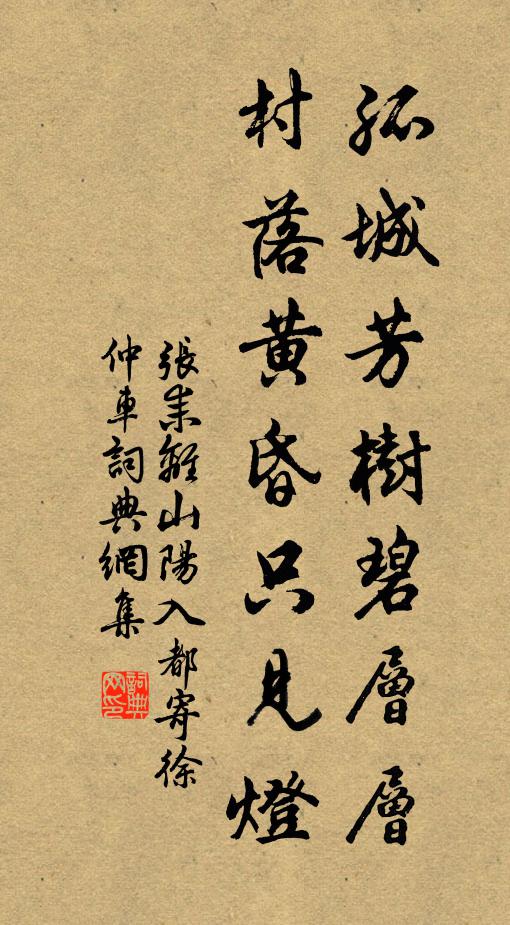 孤城芳樹碧層層
村落黄昏只見燈
張耒離山陽入都寄徐
仲車詞典網集
詞典網印